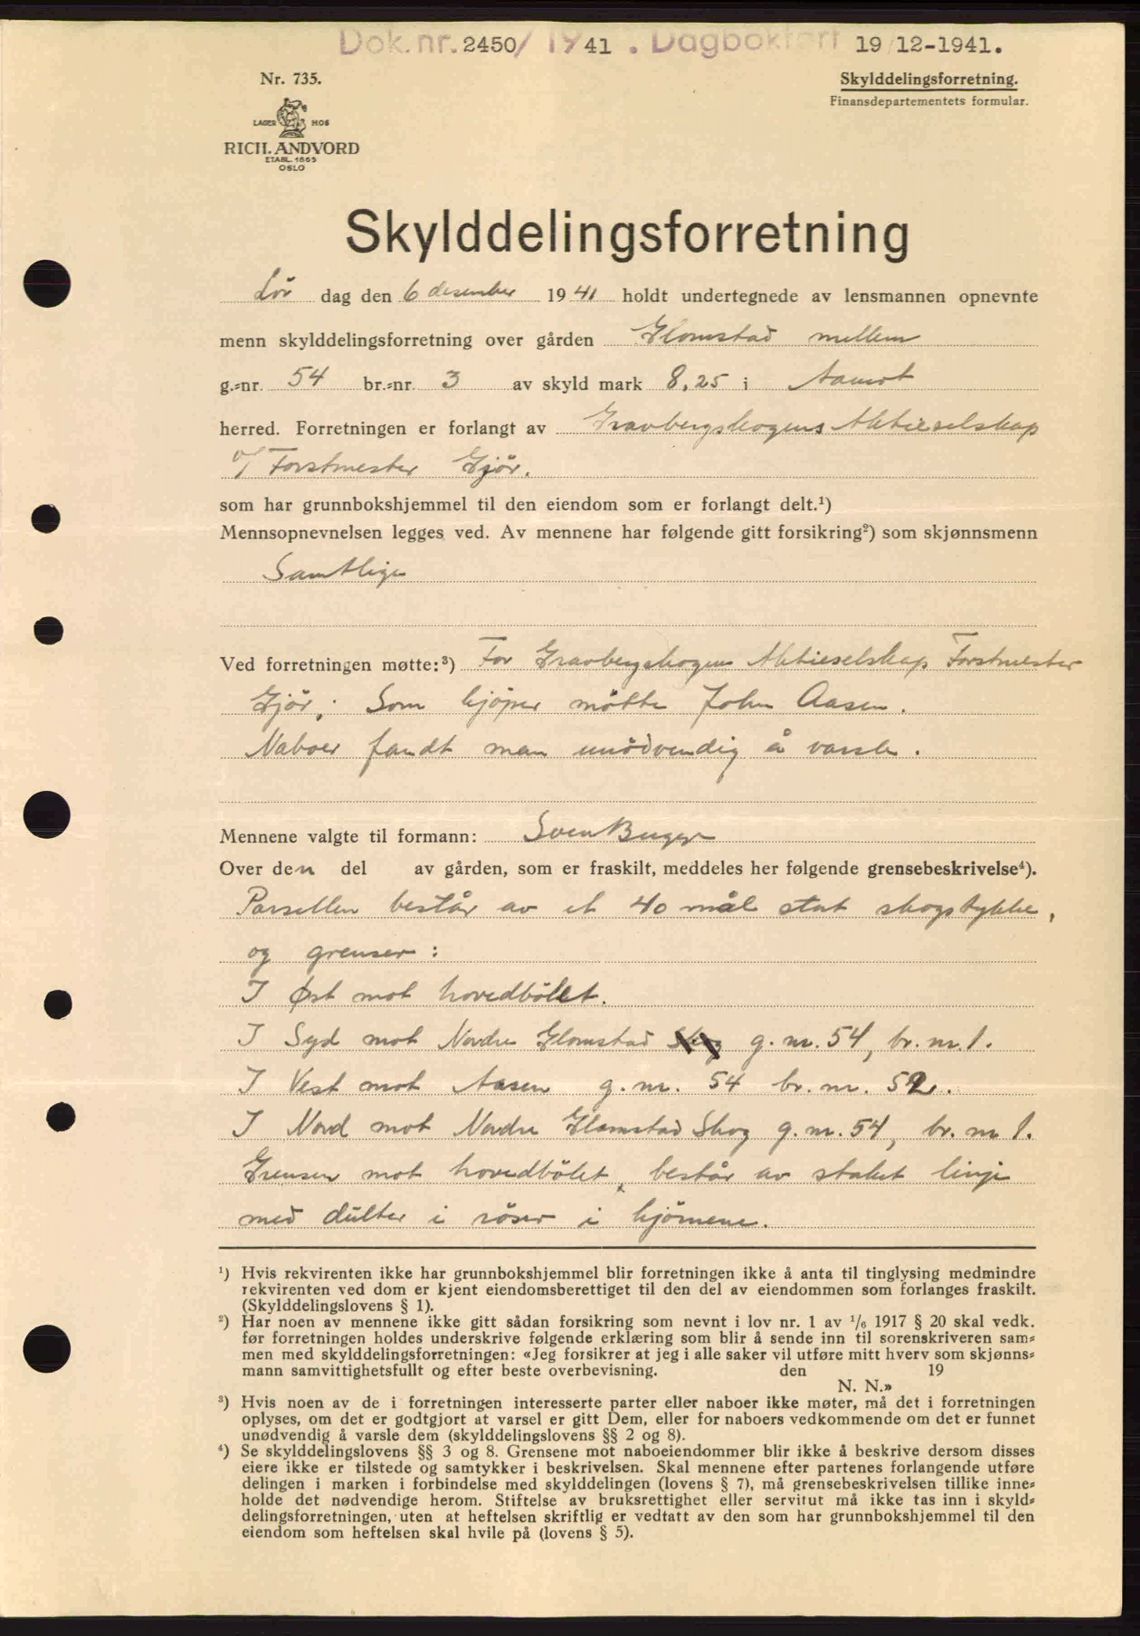 Dok. nr. 2450/1941. Dagbokført 19/12-1941.
Nr. 735.
Skylddelingsforretning.
Finansdepartementets formular.
LAGER HOS
RICH. ANDVORD
ETABL. 1865
OSLO
Skylddelingsforretning
Lør dag den 6 desember 1941 holdt undertegnede av lensmannen opnevnte
menn skylddelingsforretning over gården Glomstad mellem
g.-nr. 54 br.-nr. 3 av skyld mark 8,25 i Aamot
herred. Forretningen er forlangt av Gravbergskogens Aktieselskap
v/ Forstmester Gjør.
som har grunnbokshjemmel til den eiendom som er forlangt delt.¹)
Mennsopnevnelsen legges ved. Av mennene har følgende gitt forsikring²) som skjønnsmenn
Samtlige
Ved forretningen møtte:³) For Gravbergskogens Aktieselskap Forstmester
Gjør; Som kjøper møtte John Aasen.
Naboer fandt man unødvendig å varsle.
Mennene valgte til formann: Sven
Over den del av gården, som er fraskilt, meddeles her følgende grensebeskrivelse⁴).
Parsellen består av et 40 mål stort skogstykke,
og grenser:
I Øst mot hovedbølet.
I Syd mot Nordre Glomstad Skog g. nr. 54, br. nr. 1.
I Vest mot Aasen g. nr. 54 br. nr. 52.
I Nord mot Nordre Glomstad Skog g. nr. 54, br. nr 1.
Grensen mot hovedbølet, består av staket linje
med dulter i röser i hjørnene.
¹) Hvis rekvirenten ikke har grunnbokshjemmel blir forretningen ikke å anta til tinglysing medmindre
rekvirenten ved dom er kjent eiendomsberettiget til den del av eiendommen som forlanges fraskilt.
(Skylddelingslovens § 1).
²) Har noen av mennene ikke gitt sådan forsikring som nevnt i lov nr. 1 av ¹/₆ 1917 § 20 skal vedk.
før forretningen holdes underskrive følgende erklæring som blir å sende inn til sorenskriveren sam-
men med skylddelingsforretningen: «Jeg forsikrer at jeg i alle saker vil utføre mitt hverv som skjønns-
mann samvittighetsfullt og efter beste overbevisning. den 19
N. N.»
³) Hvis noen av de i forretningen interesserte parter eller naboer ikke møter, må det i forretningen
oplyses, om det er godtgjort at varsel er gitt Dem, eller for naboers vedkommende om det er funnet
unødvendig å varsle dem (skylddelingslovens §§ 2 og 8).
⁴) Se skylddelingslovens §§ 3 og 8. Grensene mot naboeiendommer blir ikke å beskrive dersom disses
eiere ikke er tilstede og samtykker i beskrivelsen. Skal mennene efter partenes forlangende utføre
delingen i marken i forbindelse med skylddelingen (lovens § 7), må grensebeskrivelsen tillike inne-
holde det nødvendige herom. Stiftelse av bruksrettighet eller servitut må ikke tas inn i skyld-
delingsforretningen, uten at heftelsen skriftlig er vedtatt av den som har grunnbokshjemmel til den
eiendom som heftelsen skal hvile på (lovens § 5).